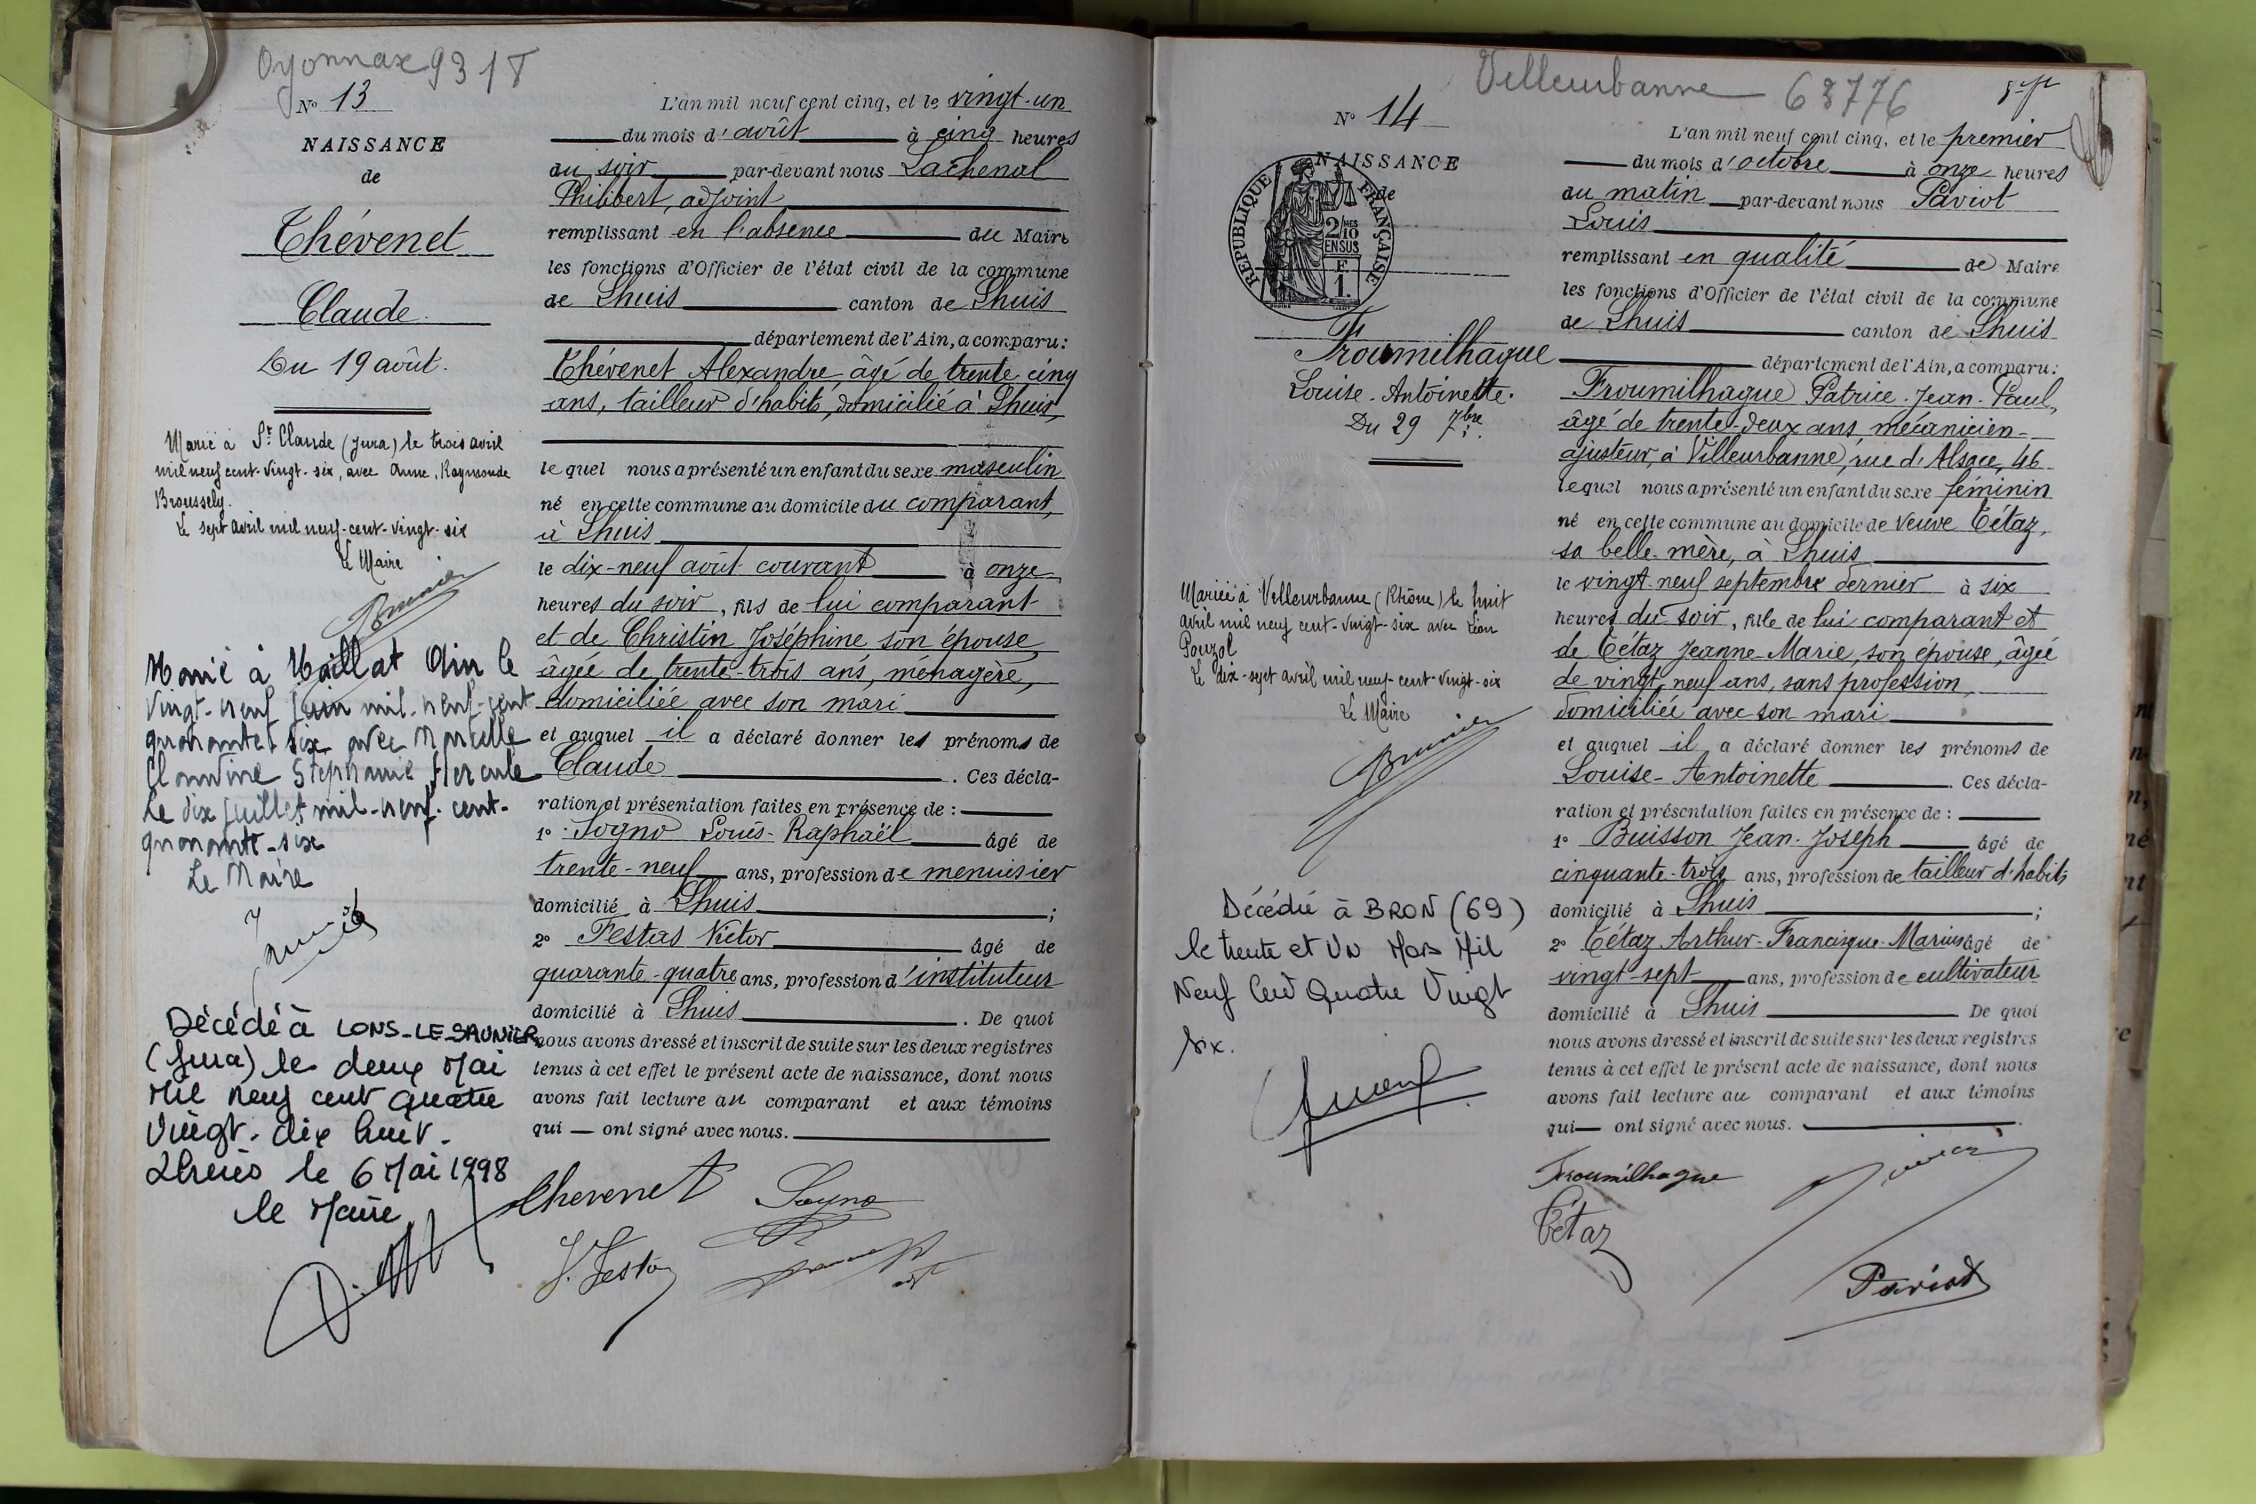 Oyonnax 93 1T
N° 13
NAISSANCE
de
Thévenet
Claude.
Du 19 août.
Marié à St Claude (Jura) le trois avril
mil neuf cent-vingt-six, avec Anne, Raymonde
Broussely.
Le sept avril mil neuf-cent-vingt-six
Le Maire
Brunier
Marié à Maillat Ain le
vingt-neuf juin mil-neuf-cent
quarante six avec Marcelle
Claudine Stéphanie Hercule
Le dix juillet mil-neuf-cent-
quarante-six
Le Maire
Décédé à LONS-LE-SAUNIER
(Jura) le deux Mai
Mil neuf cent quatre
Vingt-dix huit.
Lhuis le 6 Mai 1998
le Maire
L'an mil neuf cent cinq, et le vingt-un
du mois d'août à cinq heures
du soir par-devant nous Lachenal
Philibert, adjoint
remplissant en l'absence du Maire
les fonctions d'Officier de l'état civil de la commune
de Lhuis canton de Lhuis
département de l'Ain, a comparu:
Thévenet Alexandre âgé de trente cinq
ans, tailleur d'habits, domicilié à Lhuis,
lequel nous a présenté un enfant du sexe masculin
né en cette commune au domicile du comparant,
à Lhuis
le dix-neuf août courant à onze
heures du soir, fils de lui comparant
et de Christin Joséphine son épouse
âgée de trente-trois ans, ménagère,
domiciliée avec son mari
et auquel il a déclaré donner les prénoms de
Claude. Ces décla-
ration et présentation faites en présence de :
1° Sogno Louis-Raphaël âgé de
trente-neuf ans, profession de menuisier
domicilié à Lhuis ;
2° Festas Victor âgé de
quarante-quatre ans, profession d'instituteur
domicilié à Lhuis. De quoi
nous avons dressé et inscrit de suite sur les deux registres
tenus à cet effet le présent acte de naissance, dont nous
avons fait lecture au comparant et aux témoins
qui — ont signé avec nous.
Thevenet Sogno
V. Festas
Villeurbanne 63776
N° 14
NAISSANCE
de
RÉPUBLIQUE FRANÇAISE
2/10 MES
EN SUS
F.
1.
Froumilhague
Louise-Antoinette.
Du 29 7bre.
Mariée à Villeurbanne (Rhône) le huit
avril mil neuf cent-vingt-six avec Léon
Pouzol
Le dix-sept avril mil neuf-cent-vingt-six
Le Maire
Brunier
Décédée à BRON (69)
le trente et un Mars Mil
Neuf Cent Quatre Vingt
Six.
L'an mil neuf cent cinq, et le premier
du mois d'octobre à onze heures
du matin par-devant nous Paviot
Louis
remplissant en qualité de Maire
les fonctions d'Officier de l'état civil de la commune
de Lhuis canton de Lhuis
département de l'Ain, a comparu:
Froumilhague Patrice-Jean-Paul,
âgé de trente-deux ans, mécanicien-
ajusteur, à Villeurbanne, rue d'Alsace, 46
lequel nous a présenté un enfant du sexe féminin
né en cette commune au domicile de Veuve Tétaz,
sa belle-mère, à Lhuis
le vingt-neuf septembre dernier à six
heures du soir, fille de lui comparant et
de Tétaz Jeanne-Marie, son épouse, âgée
de vingt-neuf ans, sans profession,
domiciliée avec son mari
et auquel il a déclaré donner les prénoms de
Louise-Antoinette. Ces décla-
ration et présentation faites en présence de :
1° Buisson Jean-Joseph âgé de
cinquante-trois ans, profession de tailleur d'habits
domicilié à Lhuis ;
2° Tétaz Arthur-Francisque-Marius âgé de
vingt-sept ans, profession de cultivateur
domicilié à Lhuis De quoi
nous avons dressé et inscrit de suite sur les deux registres
tenus à cet effet le présent acte de naissance, dont nous
avons fait lecture au comparant et aux témoins
qui — ont signé avec nous.
Froumilhague
Tétaz
Paviot